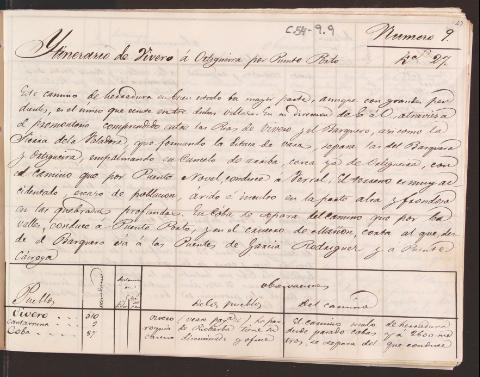 27
C54-9.9
Numero 9
Ytinerario de Vivero á Ortigueira por Puente Porto
27.
Este camino de herradura en buen estado la mayor parte, aunque con grandes pen
dientes, es el unico que existe entre dichas villas. En su direccion de E á O, atraviesa
el promontorio comprendido entre las Rias de Vivero y el Barquero, asi como la
Sierra de la Faladora, que formando la divisoria de , separa las del Barquero
y Ortigueira, empalmando en Cuenelo de arriba cerca ya de Ortigueira, con
el camino que por Puente Novel, conduce á Ferrol. El terreno es muy ac
cidentado escaso de poblacion, árido é inculto en la parte alta y frondoso
en las quebradas profundas. En Coba se separa del camino que por los
valles, conduce á Puente Porto, y en el caserio de Mañon, corta al que des
de el Barquero vá á las Puentes de Garcia Rodriguez y a Puente
Carroza
Pueblos
observaciones
de los pueblos
del camino
Vivero 310
Cantarrana 9
Coba 87
Vivero (vease pag.ª) la par
roquia de tiene de
caserio diseminado y ofrece
El camino malo de herradura
desde pasado Cobas y a 2600 me
tros, se separa del que conduce